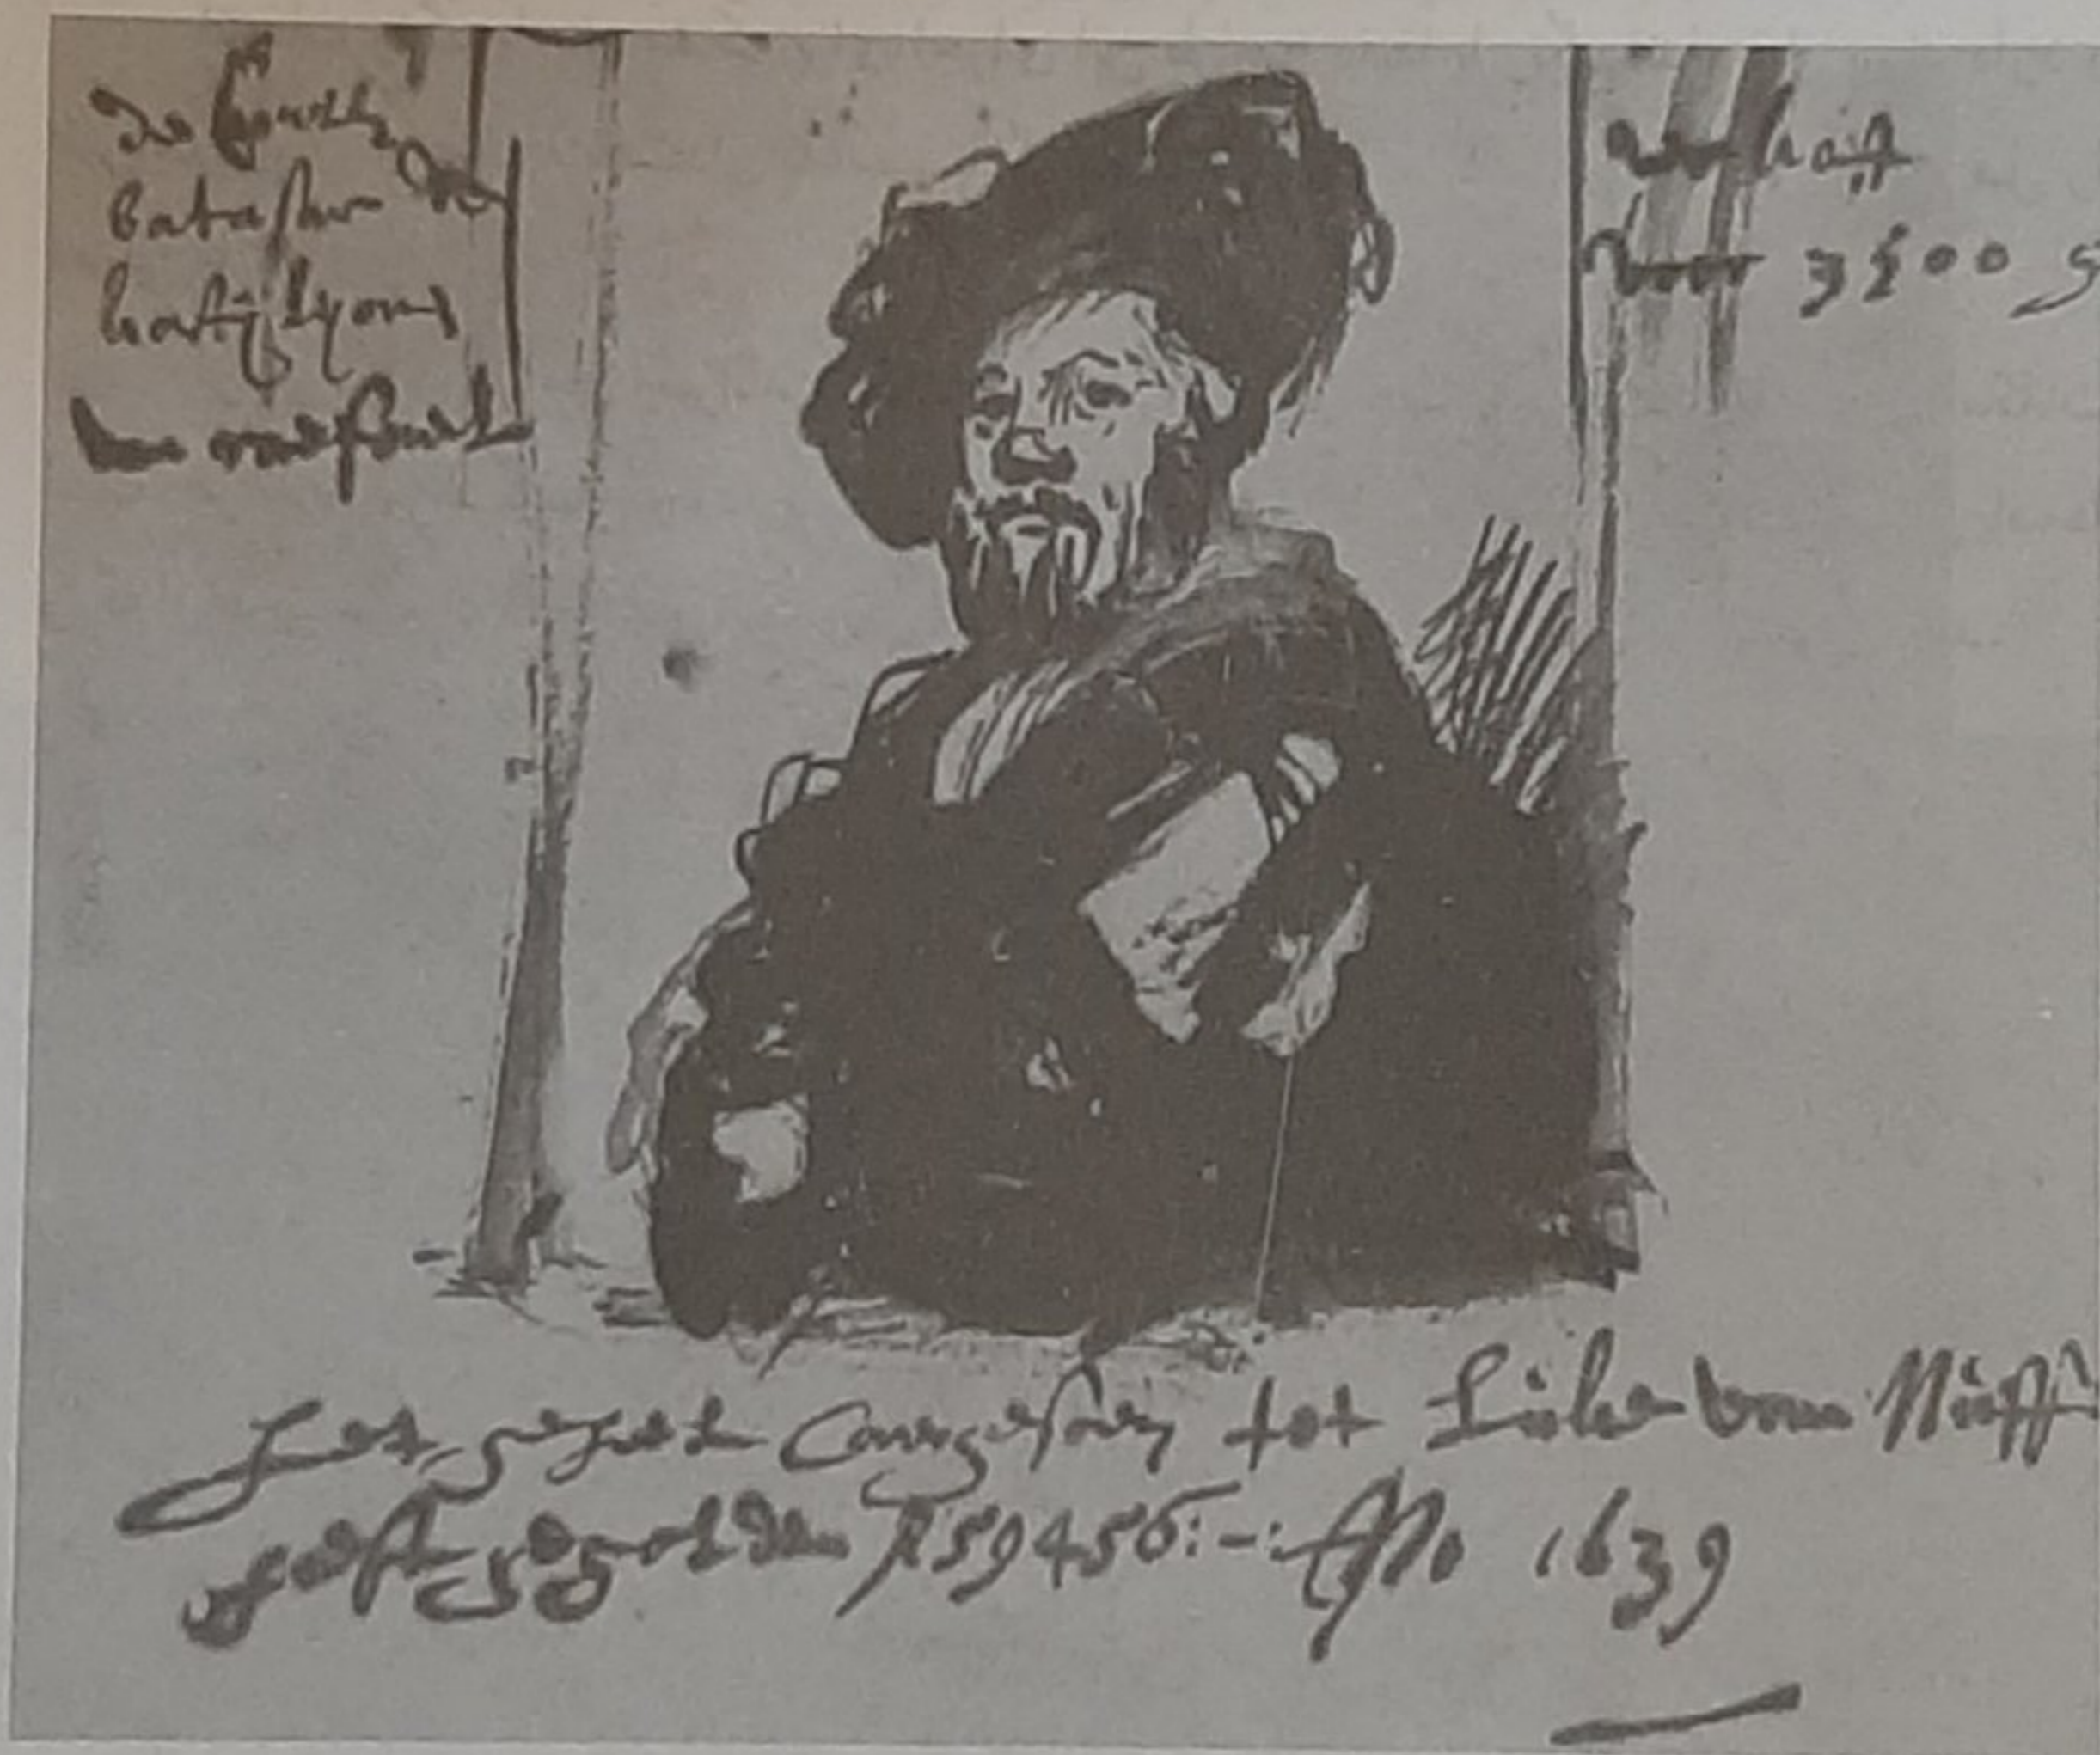 de Conte
batasar de
kastijlyone
van raefael
verkoft
voor 3500 g
het geheel Caergesoen tot Luke van Nuff
heeft gegolden f 59456:-: Ano 1639